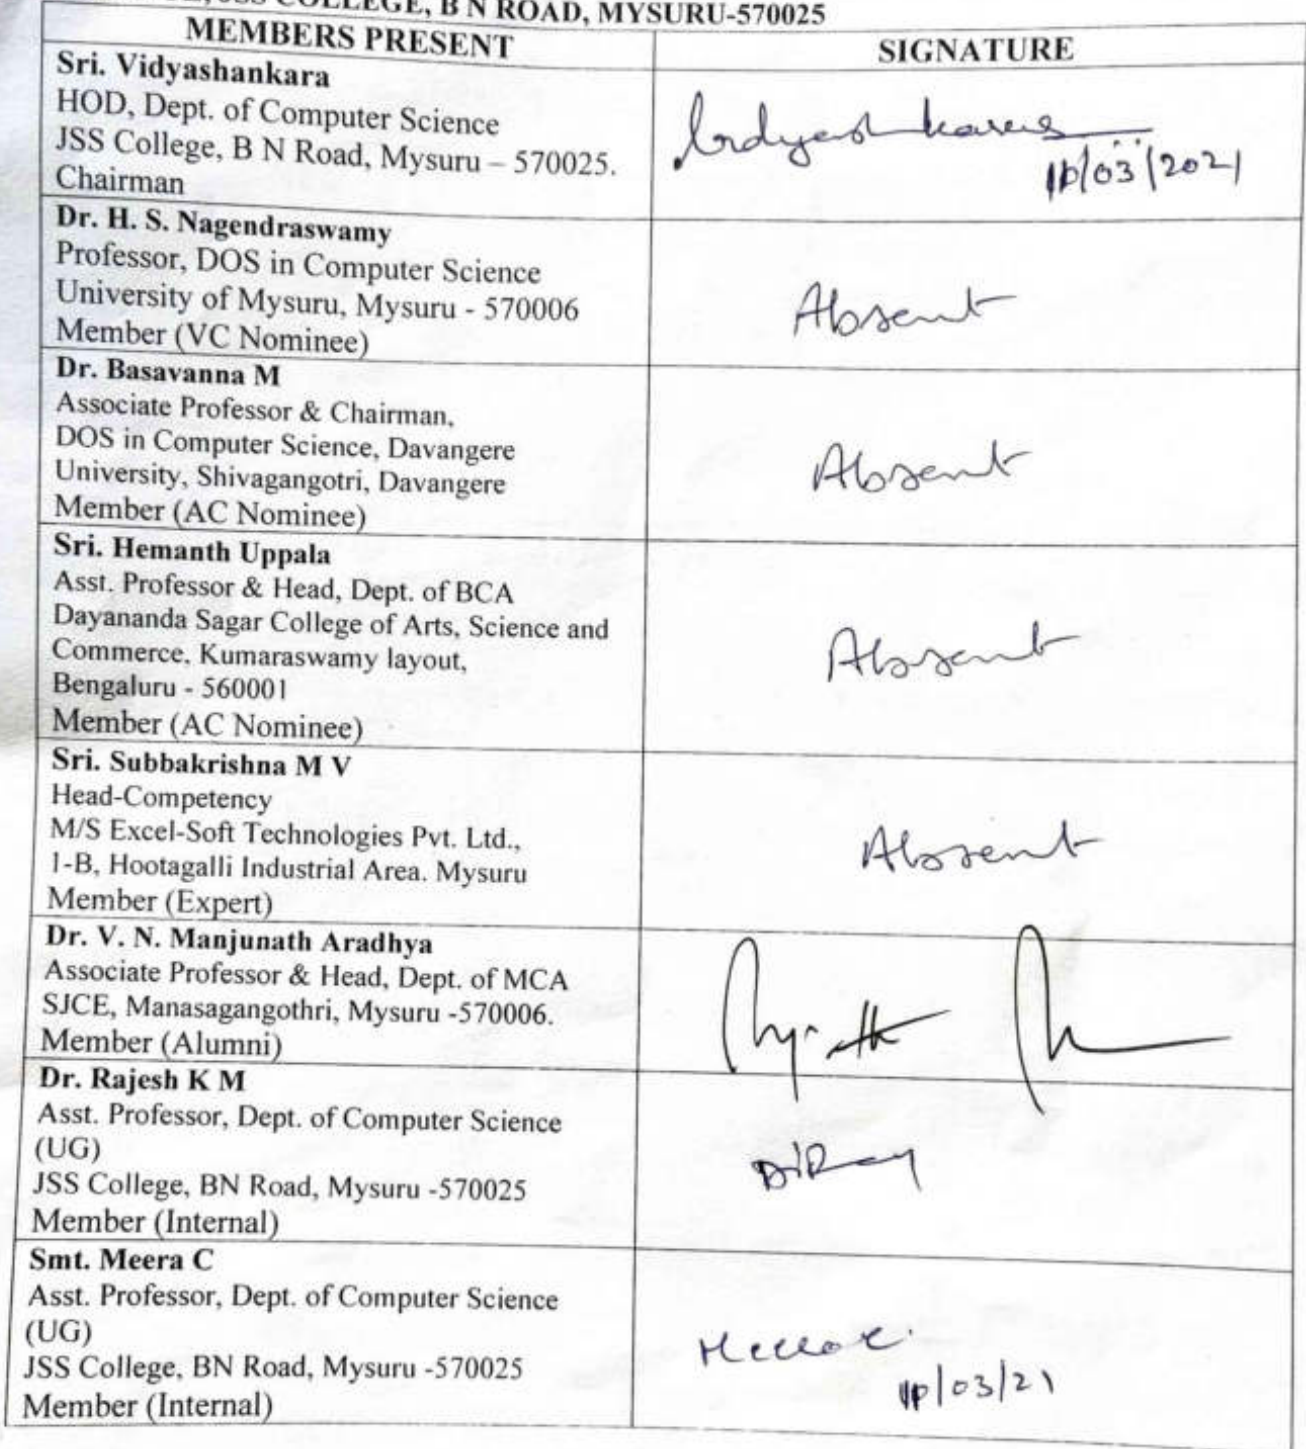 COLLEGE, B N ROAD, MYSURU-570025
MEMBERS PRESENT
SIGNATURE
Sri. Vidyashankara
HOD, Dept. of Computer Science
JSS College, B N Road, Mysuru – 570025.
Chairman
10/03/2021
Dr. H. S. Nagendraswamy
Professor, DOS in Computer Science
University of Mysuru, Mysuru - 570006
Member (VC Nominee)
Absent
Dr. Basavanna M
Associate Professor & Chairman,
DOS in Computer Science, Davangere
University, Shivagangotri, Davangere
Member (AC Nominee)
Absent
Sri. Hemanth Uppala
Asst. Professor & Head, Dept. of BCA
Dayananda Sagar College of Arts, Science and
Commerce, Kumaraswamy layout,
Bengaluru - 560001
Member (AC Nominee)
Absent
Sri. Subbakrishna M V
Head-Competency
M/S Excel-Soft Technologies Pvt. Ltd.,
1-B, Hootagalli Industrial Area. Mysuru
Member (Expert)
Absent
Dr. V. N. Manjunath Aradhya
Associate Professor & Head, Dept. of MCA
SJCE, Manasagangothri, Mysuru -570006.
Member (Alumni)
Dr. Rajesh K M
Asst. Professor, Dept. of Computer Science
(UG)
JSS College, BN Road, Mysuru -570025
Member (Internal)
Smt. Meera C
Asst. Professor, Dept. of Computer Science
(UG)
JSS College, BN Road, Mysuru -570025
Member (Internal)
10/03/21